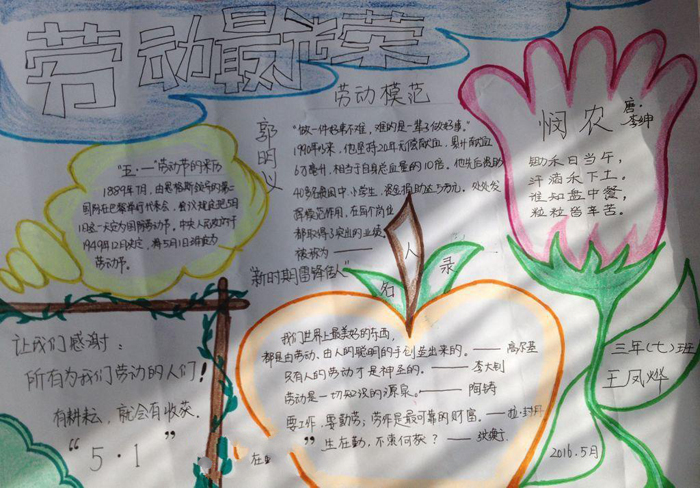 劳动最光荣
"五·一"劳动节的来历
1889年7月,由恩格斯领导的第二
国际在巴黎举行代表大会,会议规定把5月
1日这一天定为国际劳动节。中央人民政府于
1949年12月决定,将5月1日法定为
劳动节。
劳动模范
郭明义
"做一件好事不难,难的是一辈子做好事。"
1990年以来,他坚持20年无偿献血,累计献血
6万毫升,相当于自身总血量的10倍。他先后资助
发挥模范作用,在每个岗位
都取得了突出的业绩。
被称为
"新时期雷锋传人"
悯农
唐·李绅
锄禾日当午,
汗滴禾下土。
谁知盘中餐,
粒粒皆辛苦。
名人录
我们世界上最美好的东西,
都是由劳动、由人的聪明的手创造出来的。——高尔基
只有人的劳动才是神圣的。——李大钊
劳动是一切知识的源泉。——陶铸
要工作,要勤劳,劳作是最可靠的财富。——拉·封丹
生在勤,不索何获?——张衡
让我们感谢:
所有为我们劳动的人们!
有耕耘,就会有收获。
"5·1"
三年(七)班
王凤烨
2016.5月